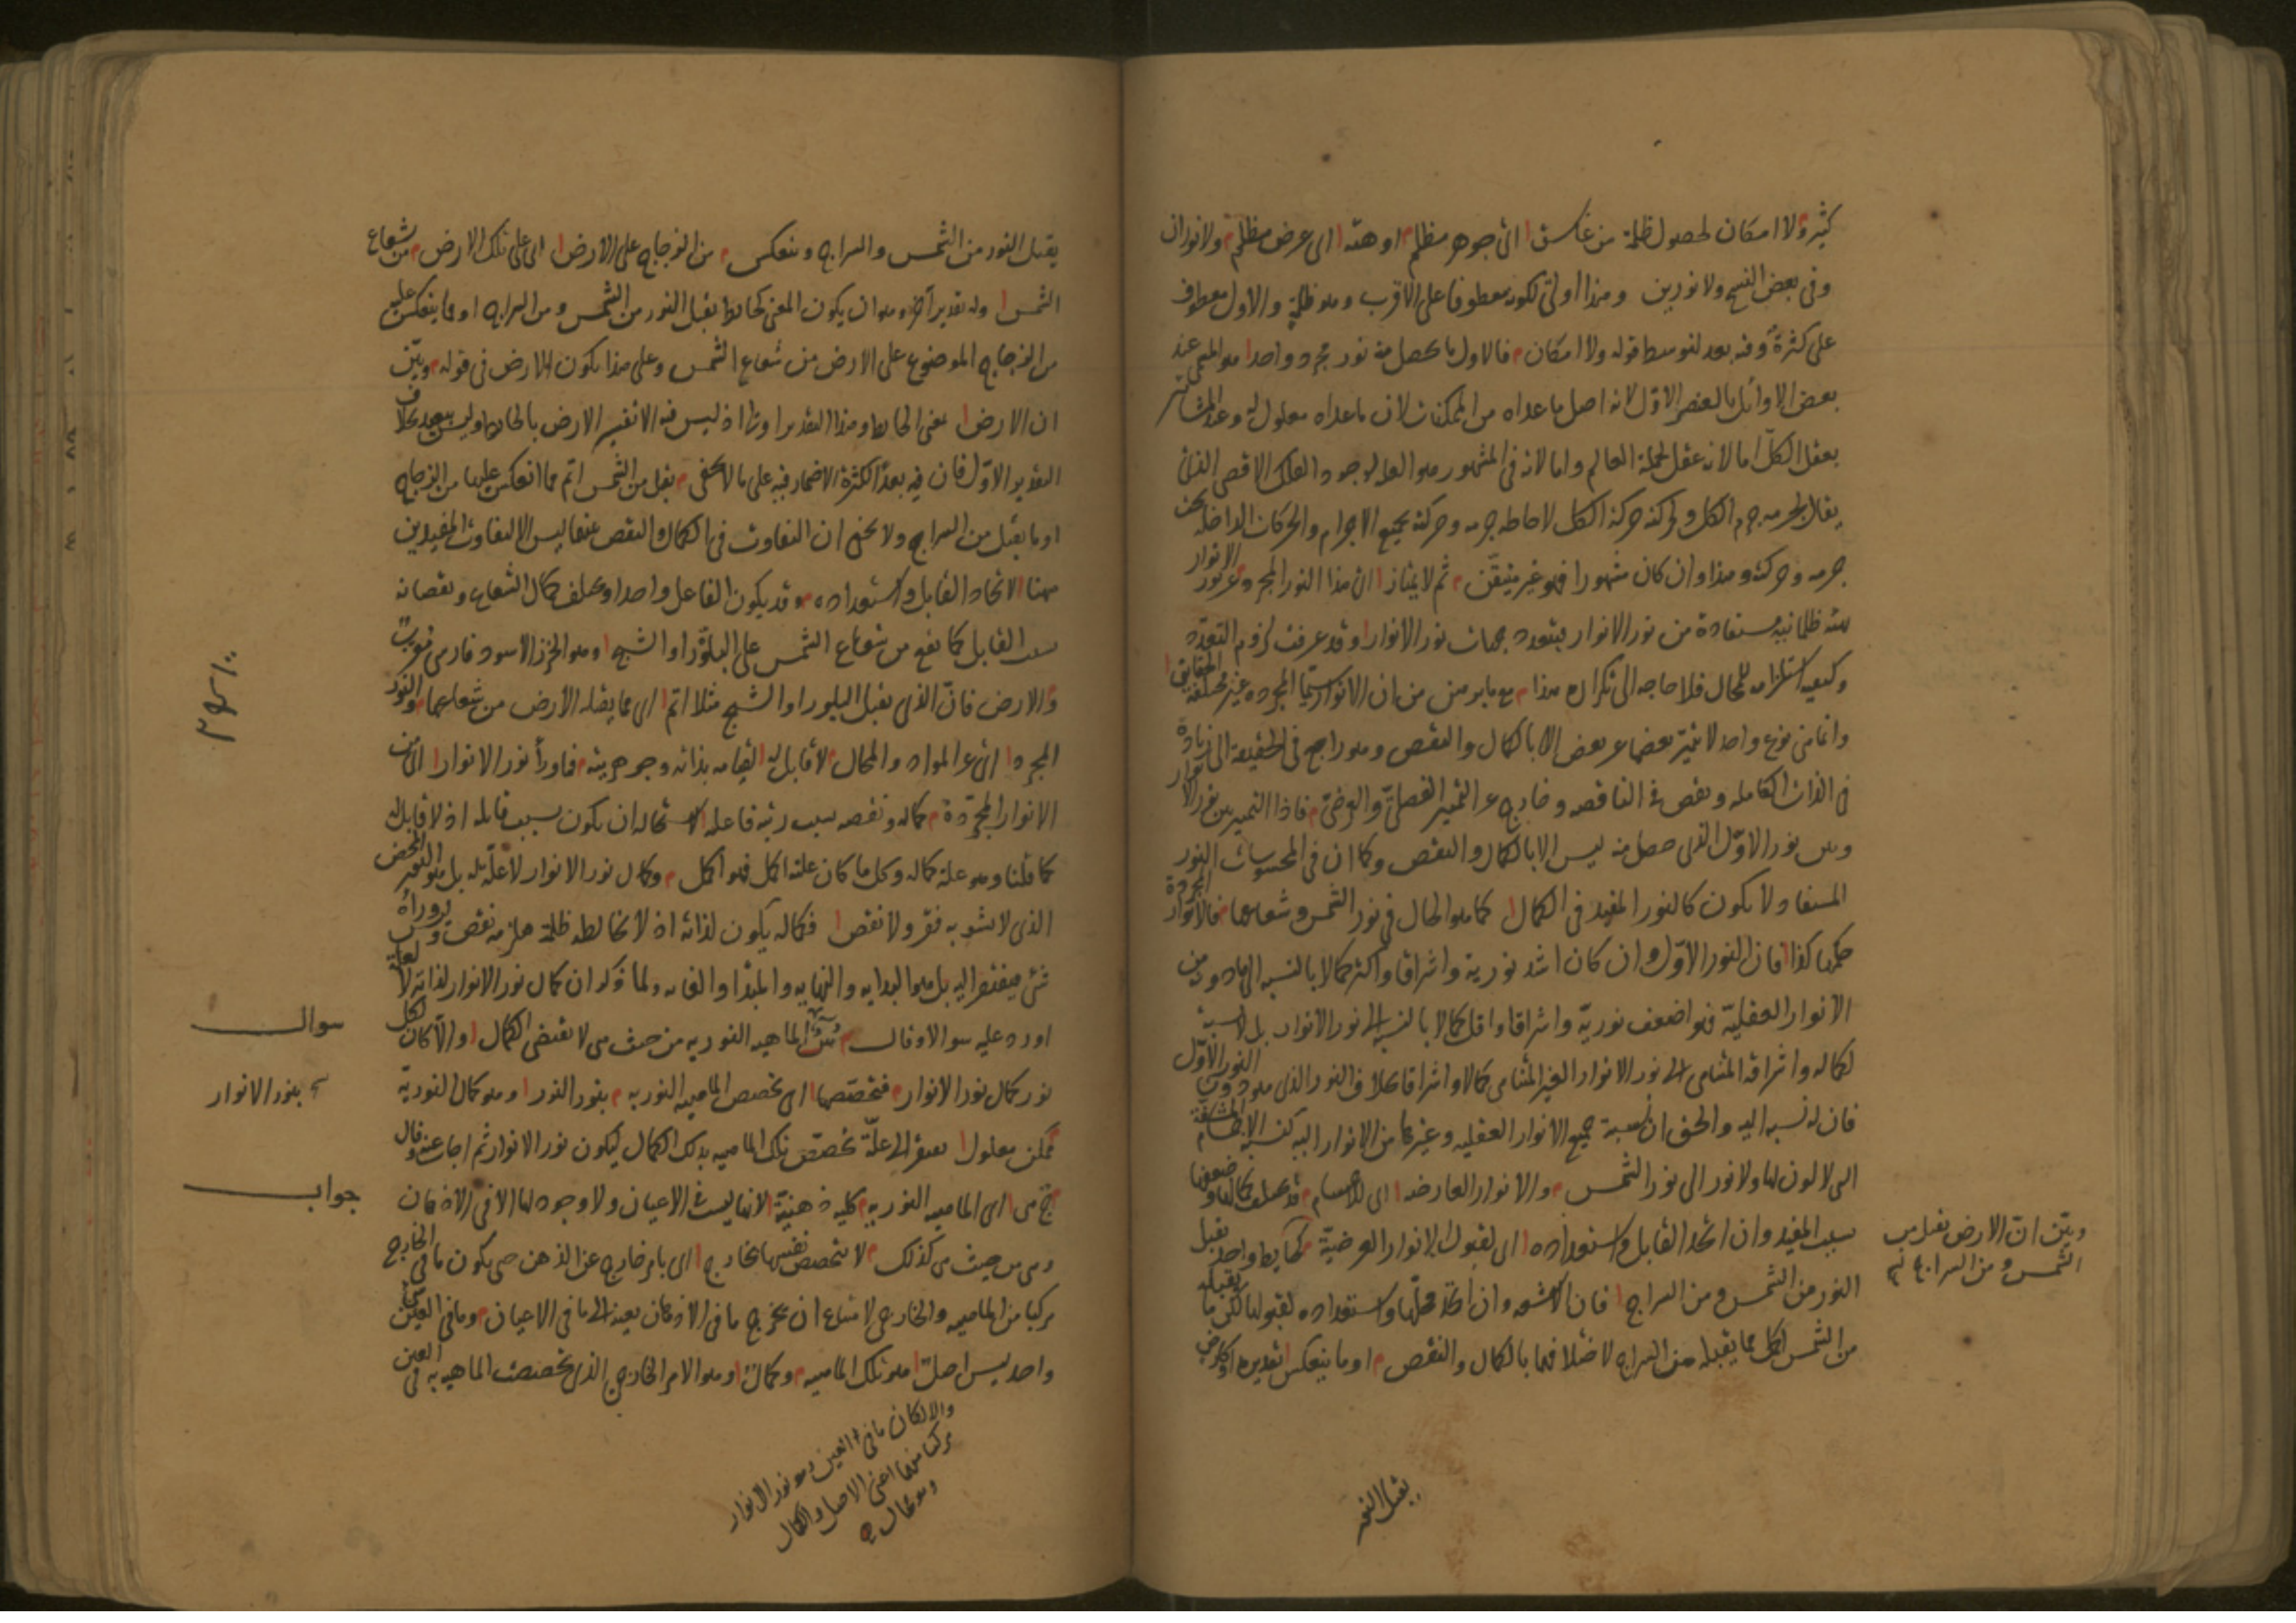 كثيرة ولا امكان لحصول ظلمة من غاسق اى جوهر مظلم او هيئة اى عرض مظلم ولا نوران
وفى بعض النسخ ولا نورين وهذا اولى لكونه معطوفا على الاقرب وهو ظلمة والاول معطوف
على كثرة وفيه بعد لتوسط قوله ولا امكان فالاول ما يحصل منه نور مجرد واحد هو المسمى عند
بعض الاوائل بالعنصر الاول لانه اصل ما عداه من الممكنات لان ما عداه معلول له وعند المشائين
بعقل الكل اما لانه عقل لجملة العالم واما لانه فى المشهور هو العلة لوجود الفلك الاقصى الذى
يقال لجرمه جرم الكل ولحركته حركة الكل لاحاطة جرمه وحركته بجميع الاجرام والحركات الداخلة تحت
جرمه وحركته وهذا وان كان مشهورا فهو غير متيقن ثم لا يمتاز اى هذا النور المجرد عن نور الانوار
بهيئة ظلمانية مستفادة من نور الانوار فيتعدد جهات نور الانوار وقد عرفت لزوم التعدد
وكيفية استلزامه للمحال فلا حاجة الى تكراره هذا مع ما برهن من ان الانوار سيما المجردة غير مختلفة الحقايق
وانما هى نوع واحد لا يتميز بعضها عن بعض الا بالكمال والنقص وهو راجع فى الحقيقة الى زيادة
فى الذات الكاملة ونقص فى الناقصة وخارج عن التميز الفصلى والعرضى فاذا التميز بين نور الانوار
وبين نور الاول الذى حصل منه ليس الا بالكمال والنقص وكما ان فى المحسوسات النور
المستفاد لا يكون كالنور المفيد فى الكمال كما هو الحال فى نور الشمس وشعاعها فالانوار المجردة
حكمها كذا فان النور الاول وان كان اشد نورية واشراقا واكثر كمالا بالنسبة الى ما دونه من
الانوار العقلية فهو اضعف نورية واشراقا واقل كمالا بالنسبة الى نور الانوار بل لا نسبة
لكماله واشراقه المتناهى الى نور الانوار الغير المتناهى كمالا واشراقا بخلاف النور الذى هو دون النور الاول
فان له نسبة اليه والحق ان نسبة جميع الانوار العقلية وغيرها من الانوار اليه كنسبة الاجسام المشفة
التى لا لون لها ولا نور الى نور الشمس والانوار العارضة اى للاجسام قد يختلف كمالها وضعفها
بسبب المفيد وان اتحد القابل واستعداده اى لقبول الانوار العرضية كحايط واحد يقبل
النور من الشمس ومن السراج فان الاشعة وان اتحد محلها واستعداده لقبولها لكن ما يقبله
من الشمس اكمل مما يقبله من السراج لاختلافهما بالكمال والنقص او ما ينعكس تقديره او كارض
وبين ان الارض تقبل من
الشمس ومن السراج
يقبل النور
يقبل النور من الشمس والسراج وينعكس من الزجاج على الارض اى على تلك الارض من شعاع
الشمس وله تقدير آخر وهو ان يكون المعنى كحايط يقبل النور من الشمس ومن السراج او مما ينعكس عليه
من الزجاج الموضوع على الارض من شعاع الشمس وعلى هذا يكون الارض فى قوله وبين
ان الارض بمعنى الحايط وهذا التقدير اولى اذ ليس فيه الا تفسير الارض بالحايط وليس ببعيد بخلاف
التقدير الاول فان فيه بعدا لكثرة الاضمار فيه على ما لا يخفى يقبل من الشمس اتم مما انعكس عليها من الزجاج
او ما يقبل من السراج ولا يخفى ان التفاوت فى الكمال والنقص عنها ليس الا لتفاوت المفيدين
ههنا لاتحاد القابل واستعداده وقد يكون الفاعل واحدا ويختلف كمال الشعاع ونقصانه
بسبب القابل كما يقع من شعاع الشمس على البلور او الشبج وهو الخرز الاسود فارسى معرب
والارض فان الذى يقبل البلور او الشبج مثلا اتم اى مما يقبله الارض من شعاعها والنور
المجرد اى عن المواد والمحال لا قابل له لقيامه بذاته وجوهريته فما وراء نور الانوار اى من
الانوار المجردة كماله ونقصه بسبب رتبة فاعله لاستحالة ان يكون بسبب قابله اذ لا قابل له
كما قلنا وهو علة كماله وكل ما كان علته اكمل فهو اكمل وكمال نور الانوار لا علة له بل هو النور المحض
الذى لا يشوبه فقر ولا نقص فكماله يكون لذاته اذ لا يخالطه ظلمة يلزمه نقص وليس وراءه
شئ فيفتقر اليه بل هو البداية والنهاية والمبدأ والغاية ولما ذكر ان كمال نور الانوار لذاته لا لعلة
اورد عليه سوالا وقال سؤال الماهية النورية من حيث هى لا تقتضى الكمال والا كان لكل
نور كمال نور الانوار فتخصصها اى تخصص الماهية النورية بنور النور وهو كمال النورية
ممكن معلول يفتقر الى علة تخصص تلك الماهية بذلك الكمال ليكون نور الانوار ثم اجاب عنه وقال
ج هى اى الماهية النورية كلية ذهنية لانها ليست فى الاعيان ولا وجود لها الا فى الاذهان
وهى من حيث هى كذلك لا تخصص نفسها بخارج اى بامر خارج عن الذهن حتى يكون ما فى الخارج
مركبا من الماهية والخارجى لامتناع ان يخرج ما فى الاذهان بعينه الى ما فى الاعيان وما فى العين شئ
واحد ليس اصل هو تلك الماهية وكمال وهو الامر الخارجى الذى تخصصت الماهية به فى العين
سوال
بنور الانوار
جواب
والا لكان ما فى العين وهو نور الانوار
مركبا منهما اعنى الاصل والكمال
وهو محال